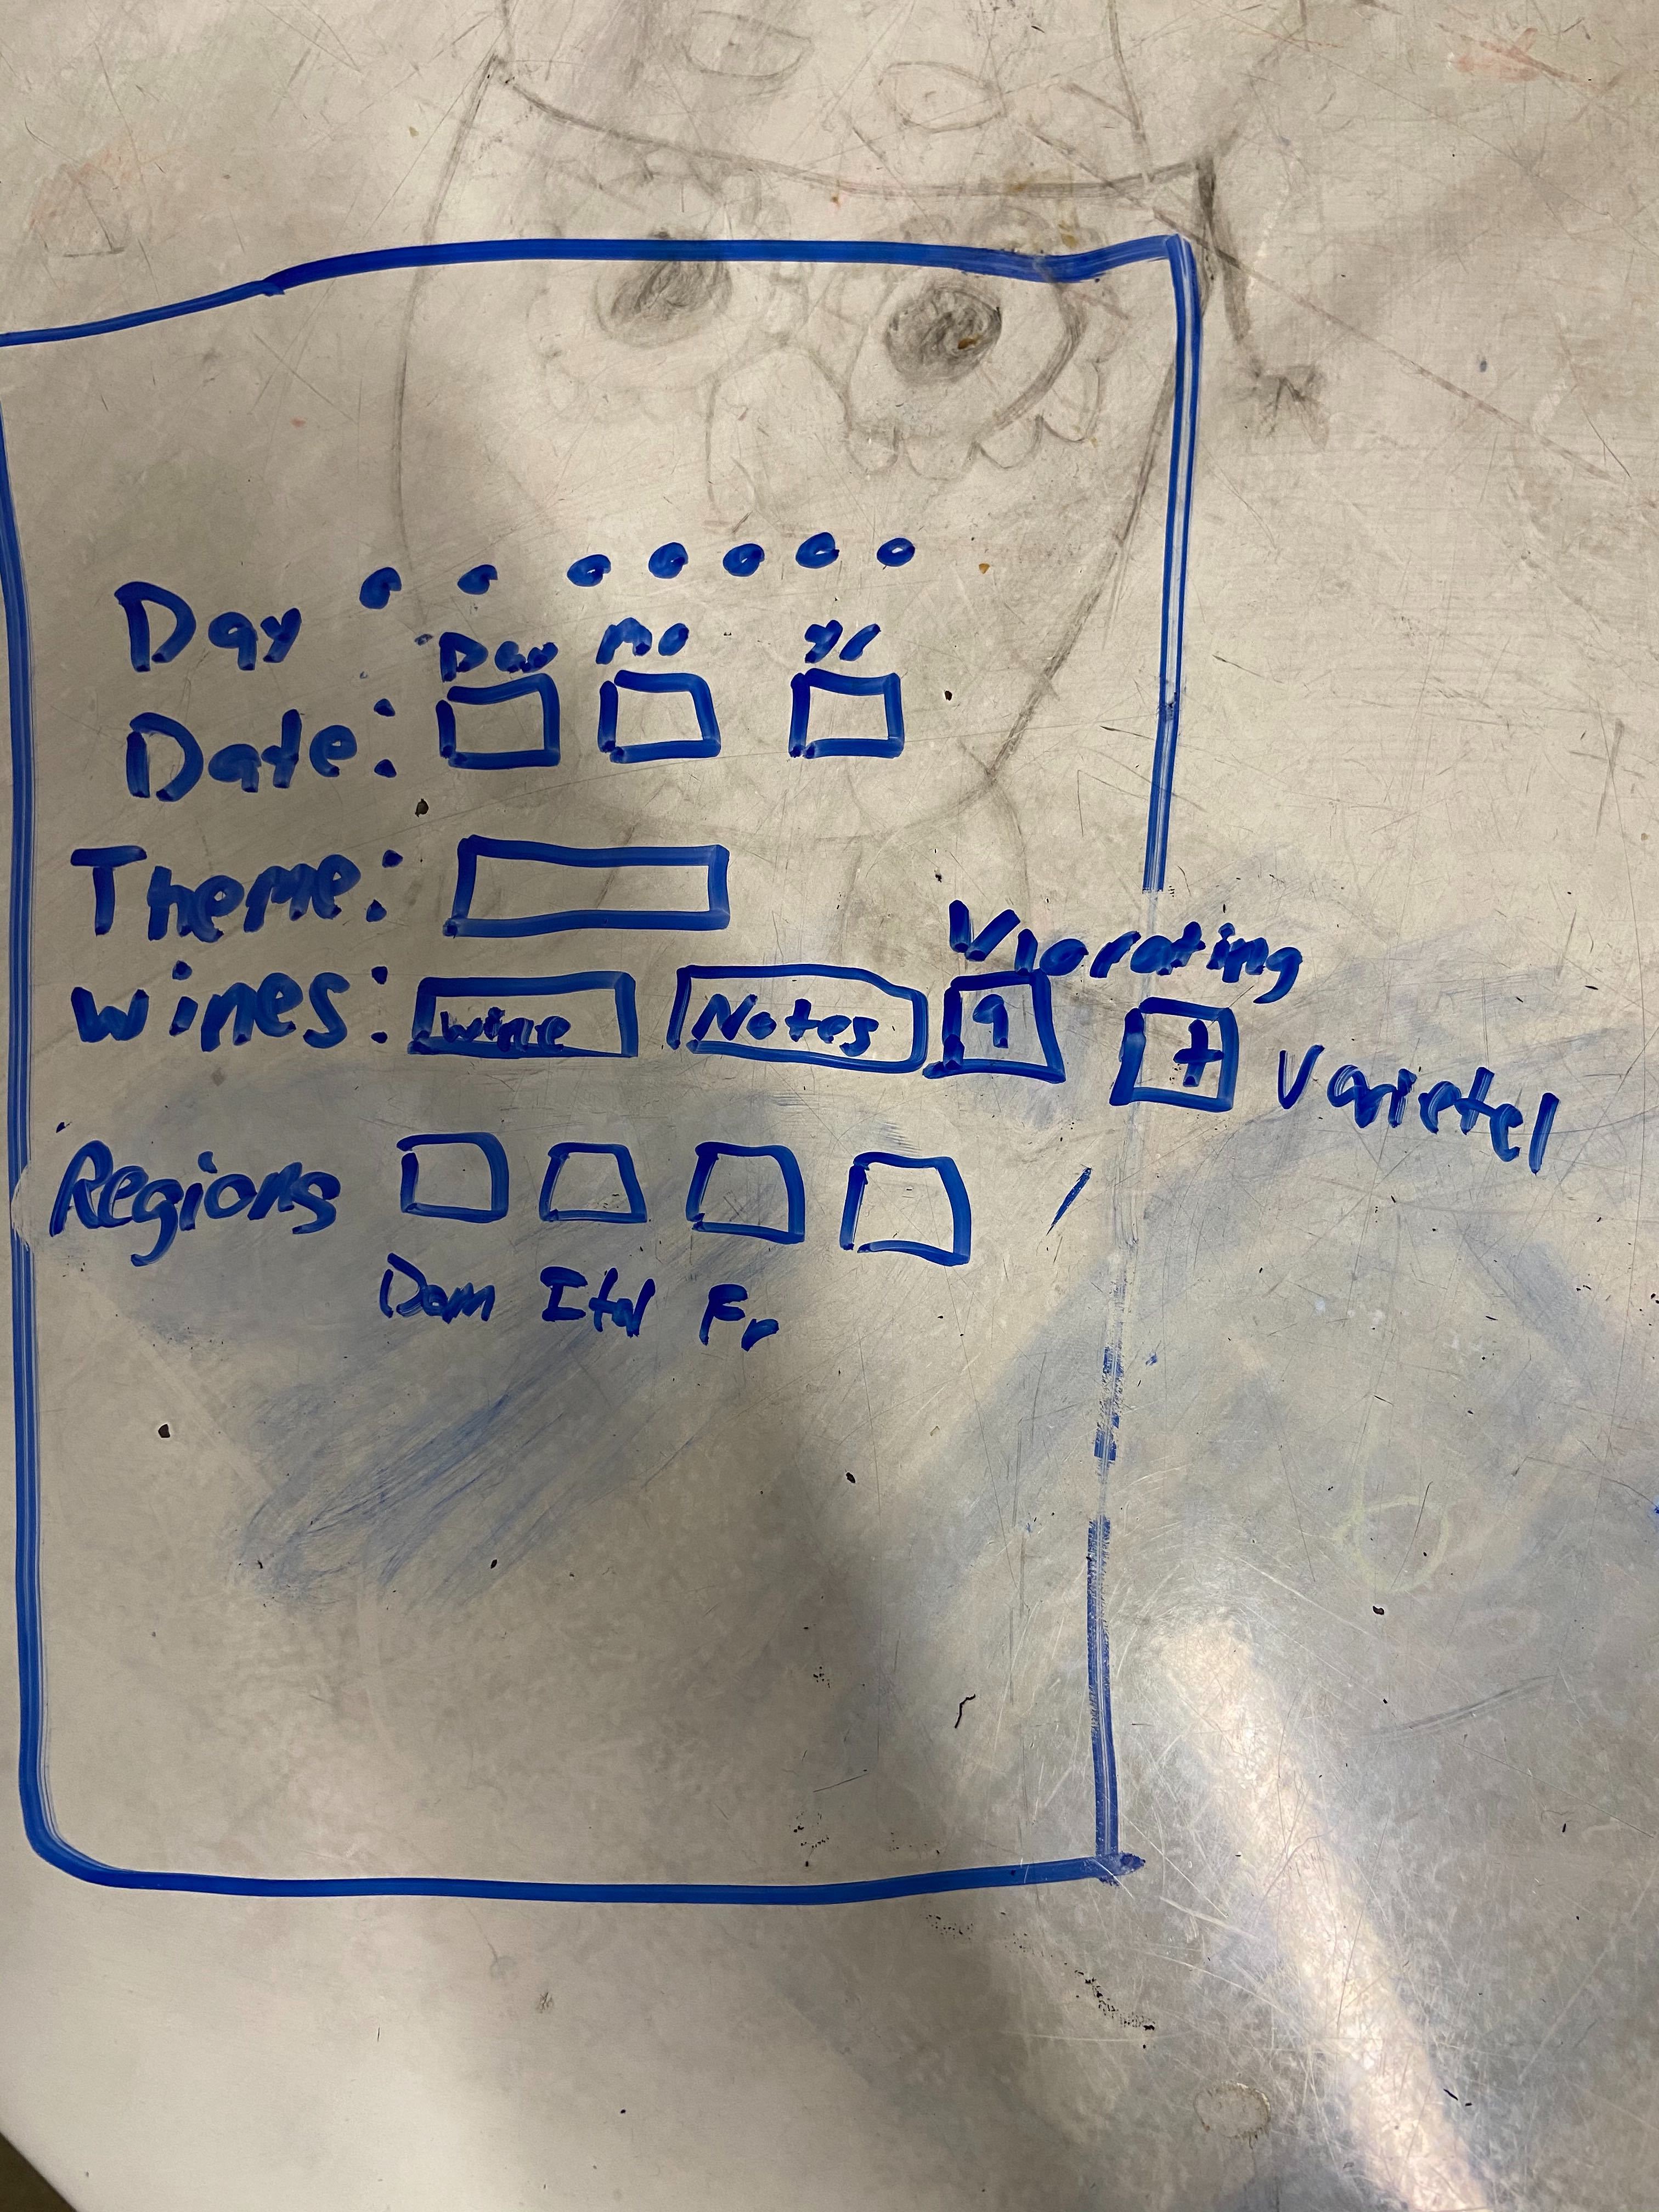 Day
Day Mo Yr
Date:
Theme:
Wines: wine Notes 9 +
Varietel
Regions
Dom Ital Fr